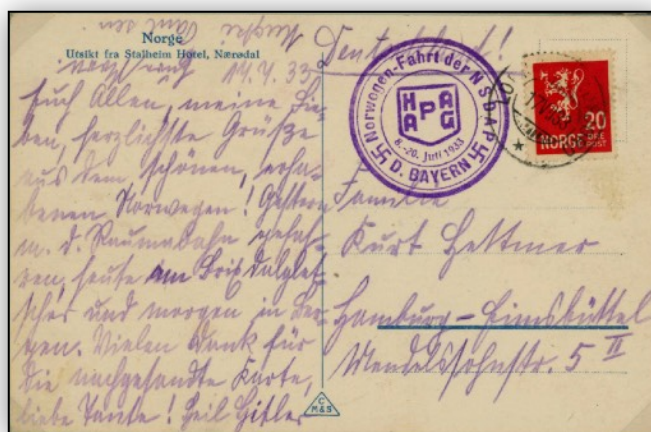 Norge
Utsikt fra Stalheim Hotel, Nærødal
14.7.33
Euch Allen, meine Lie-
ben, herzlichste Grüße
aus dem schönen, erha-
benen Norwegen! Gestern
m. d. Raumabahn gefah-
ren, heute am Brixdalglet-
scher und morgen in Ber-
gen. Vielen Dank für
die nachgesandte Karte,
liebe Tante! Heil Hitler
C
M&S
Deutschland!
Norwegen-Fahrt der NSDAP
HAPAG
8.-20. Juli 1933
D. BAYERN
20
NORGE ØRE
POST
Familie
Kurt Hettmer
Hamburg-Eimsbüttel
Mendelssohnstr. 5 II